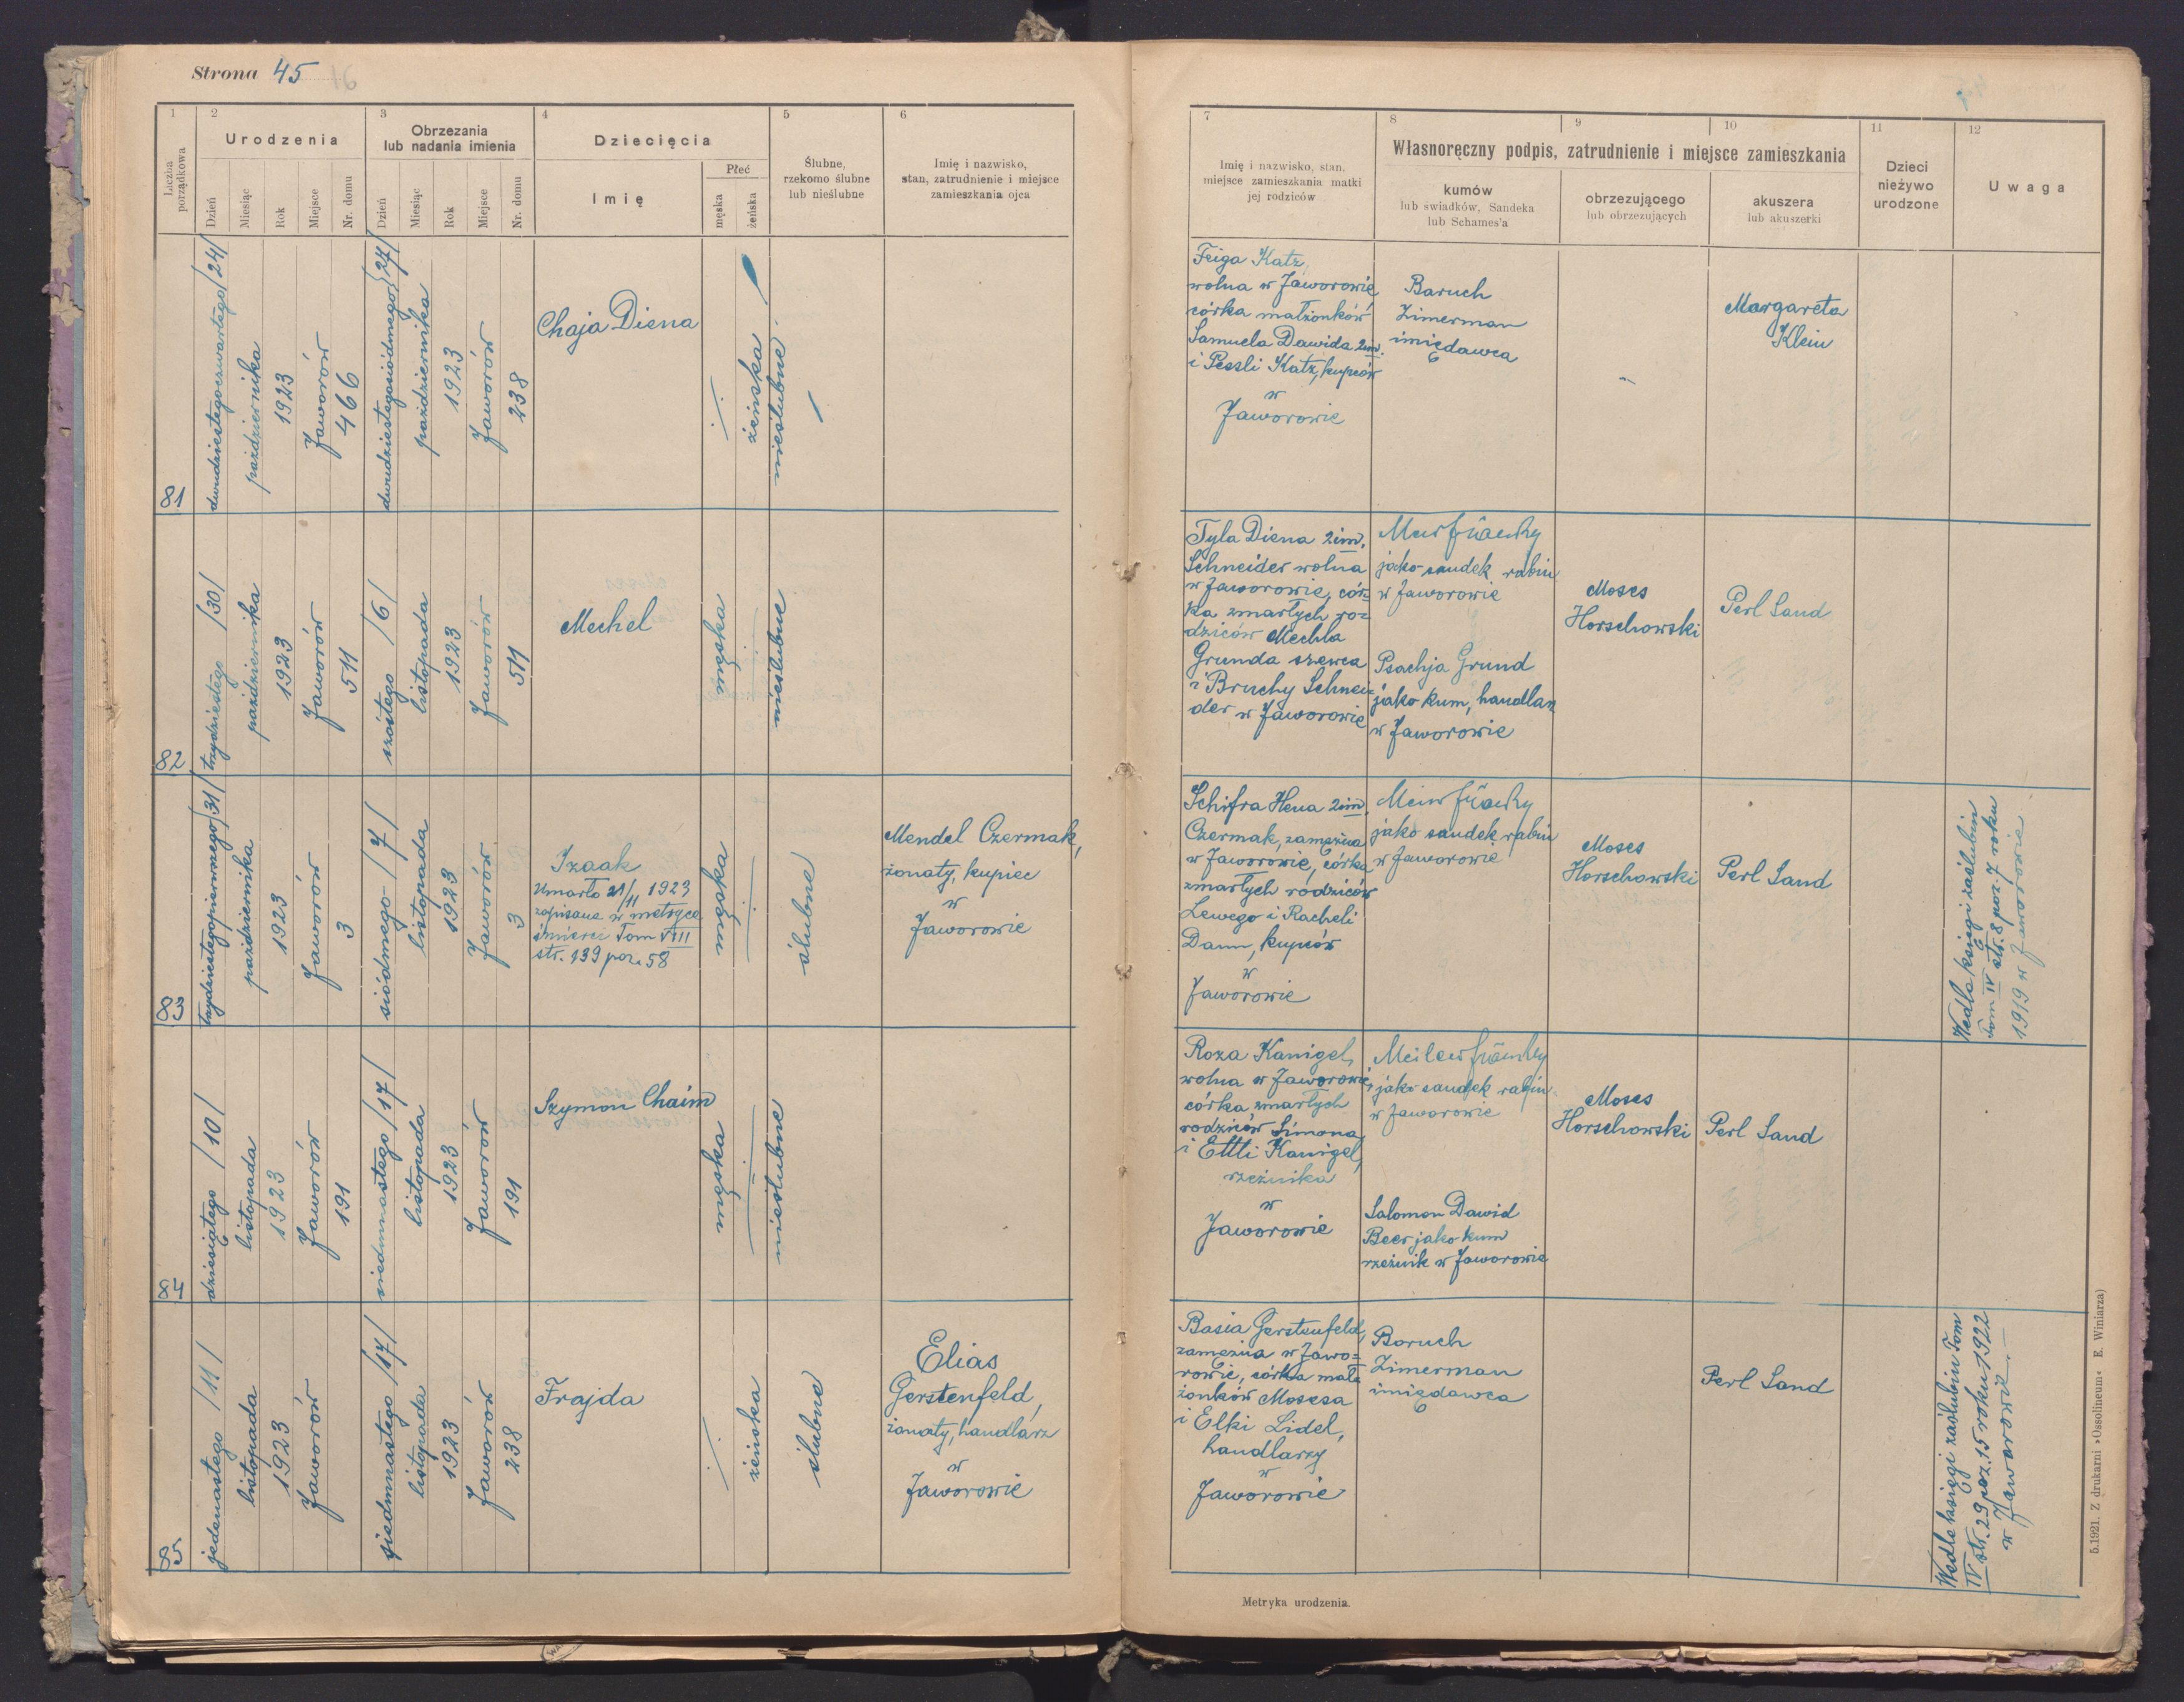 Strona 45
1
2
3
4
5
6
Liczba porządkowa
Urodzenia
Obrzezania
lub nadania imienia
Dziecięcia
Ślubne,
rzekomo ślubne
lub nieślubne
Imię i nazwisko,
stan, zatrudnienie i miejsce
zamieszkania ojca
Dzień
Miesiąc
Rok
Miejsce
Nr. domu
Dzień
Miesiąc
Rok
Miejsce
Nr. domu
Imię
Płeć
męska
żeńska
7
8
9
10
11
12
Imię i nazwisko, stan,
miejsce zamieszkania matki
jej rodziców
Własnoręczny podpis, zatrudnienie i miejsce zamieszkania
kumów
lub świadków, Sandeka
lub Schames'a
obrzezującego
lub obrzezujących
akuszera
lub akuszerki
Dzieci
nieżywo
urodzone
Uwaga
81
dwudziestegoczwartego /24/
października
1923
Jaworów
466
dwudziestegosiódmego /27/
października
1923
Jaworów
238
Chaja Diena
żeńska
nieślubne
Feiga Katz,
wolna w Jaworowie
córka małżonków
Samuela Dawida 2im.
i Pessli Katz, kupców
w
Jaworowie
Baruch
Zimerman
imiędawca
Margareta
Klein
82
trzydziestego /30/
października
1923
Jaworów
511
szóstego /6/
listopada
1923
Jaworów
511
Mechel
męska
nieślubne
Tyla Diena 2im.
Schneider wolna
w Jaworowie, cór=
ka zmarłych ro=
dziców Mechla
Grunda szewca
i Bruchy Schnei=
der w Jaworowie
jako sandek rabin
w Jaworowie
Psachja Grund
jako kum, handlarz
w Jaworowie
Moses
Horschowski
Perl Sand
83
trzydziestegopierwszego /31/
października
1923
Jaworów
3
siódmego /7/
listopada
1923
Jaworów
3
Izaak
Umarło 21/11 1923
zapisane w metryce
śmierci Tom VIII
str. 139 poz. 58
męska
ślubne
Mendel Czermak,
żonaty, kupiec
w
Jaworowie
Schifra Hena 2im.
Czermak, zamężna
w Jaworowie, córka
zmarłych rodziców
Lewego i Racheli
Dann, kupców
w
Jaworowie
jako sandek rabin
w Jaworowie
Moses
Horschowski
Perl Sand
Wedle księgi zaślubin
Tom IV str. 8 poz. 7 roku
1919 w Jaworowie
84
dziesiątego /10/
listopada
1923
Jaworów
191
siedmnastego /17/
listopada
1923
Jaworów
191
Szymon Chaim
męska
nieślubne
Roza Kanigel,
wolna w Jaworowie,
córka zmarłych
rodziców Simona
i Ettli Kanigel,
rzeźnika
w
Jaworowie
jako sandek rabin
w Jaworowie
Salomon Dawid
Beer jako kum
rzeźnik w Jaworowie
Moses
Horschowski
Perl Sand
85
jedenastego /11/
listopada
1923
Jaworów
siedmnastego /17/
listopada
1923
Jaworów
238
Frajda
żeńska
ślubne
Elias
Gerstenfeld,
żonaty, handlarz
w
Jaworowie
Basia Gerstenfeld,
zamężna w Jawo=
rowie, córka mał=
żonków Mosesa
i Elki Lidel,
handlarzy
w
Jaworowie
Boruch
Zimerman
imiędawca
Perl Sand
Wedle księgi zaślubin Tom
IV str. 29 poz. 15 roku 1922
w Jaworowie.
Metryka urodzenia.
5.1921. Z drukarni »Ossolineum« E. Winiarza)